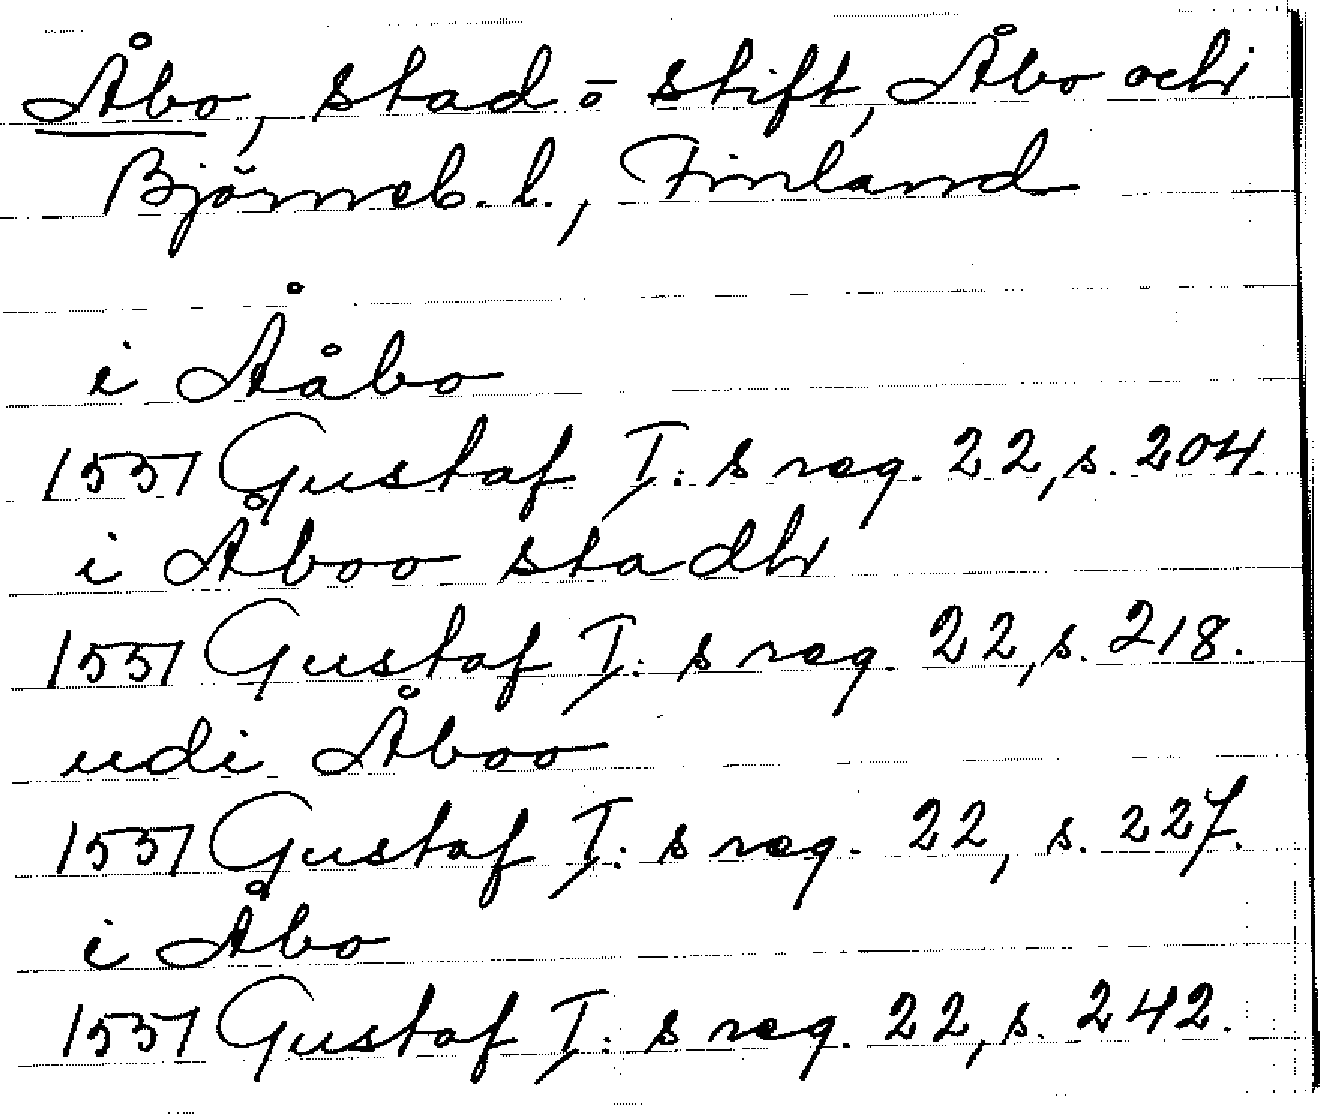 Åbo, stad o stift, Åbo och
Björneb. l., Finland
i Ååbo
1551 Gustaf I: s reg. 22, s. 204.
i Åboo stadh
1551 Gustaf I: s reg. 22, s. 218.
udi Åboo
1551 Gustaf I: s reg. 22, s. 227.
i Åbo
1551 Gustaf I: s reg. 22, s. 242.